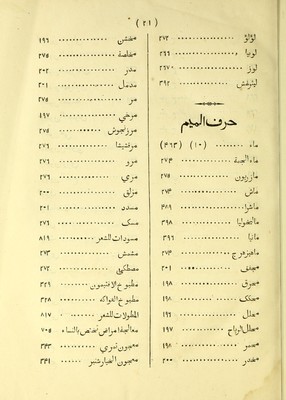 ( ٢١ )
لؤلؤ ٢٧٢
لوبيا ٢٦٦
لوز ٢٦٧٠
لينرغس ٣٩٢
حرف الميم
ماء (١٠) (٤٦٣)
ماء الجبنة ٢٧٤
مازريون ٢٧٥
ماش ٢٧٣
ماشرا ٤٨٩
مالنخوليا ٣٩٨
مانيا ٣٩٦
ماهيزهرج ٢٧٤
مجفف ٢٠١
محرق ١٩٨
محكك ١٩٨
محلل ١٩٦
محلل الرياح ١٩٧
محمر ١٩٨
مخدر ٢٠٠
مخشن ١٩٦
مخلصة ٢٧٥
مدر ٢٠٢
مدمل ٢٠١
مر ٢٧٥
مرخي ١٩٧
مرزنجوش ٢٧٥
مرقشيشا ٢٧٦
مرو ٢٧٦
مري ٢٧٦
مزلق ٢٠٠
مسدد ٢٠١
مسك ٢٧٦
مسودات للشعر ٨١٩
مشمش ٢٧٣
مصطكي ٢٧٢
مطبوخ الافتيمون ٣٢٩
مطبوخ الفواكه ٣٢٨
المطولات للشعر ٨١٧
معالجة امراض تختص بالنساء ٧٠٥
معجون تمري ٣٤٣
معجون الخيارشنبر ٣٤١